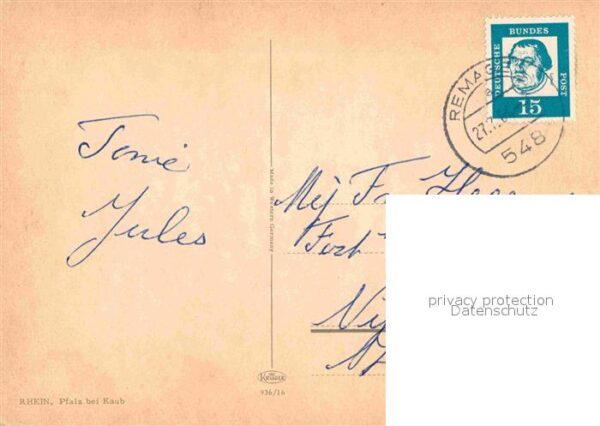 DEUTSCHE
BUNDES
POST
15
REMAG
27.7.6
548
Tonie
Jules
Made in Western Germany
Mej Fr
Fort
privacy protection
Datenschutz
Krüger
936/16
RHEIN, Pfalz bei Kaub